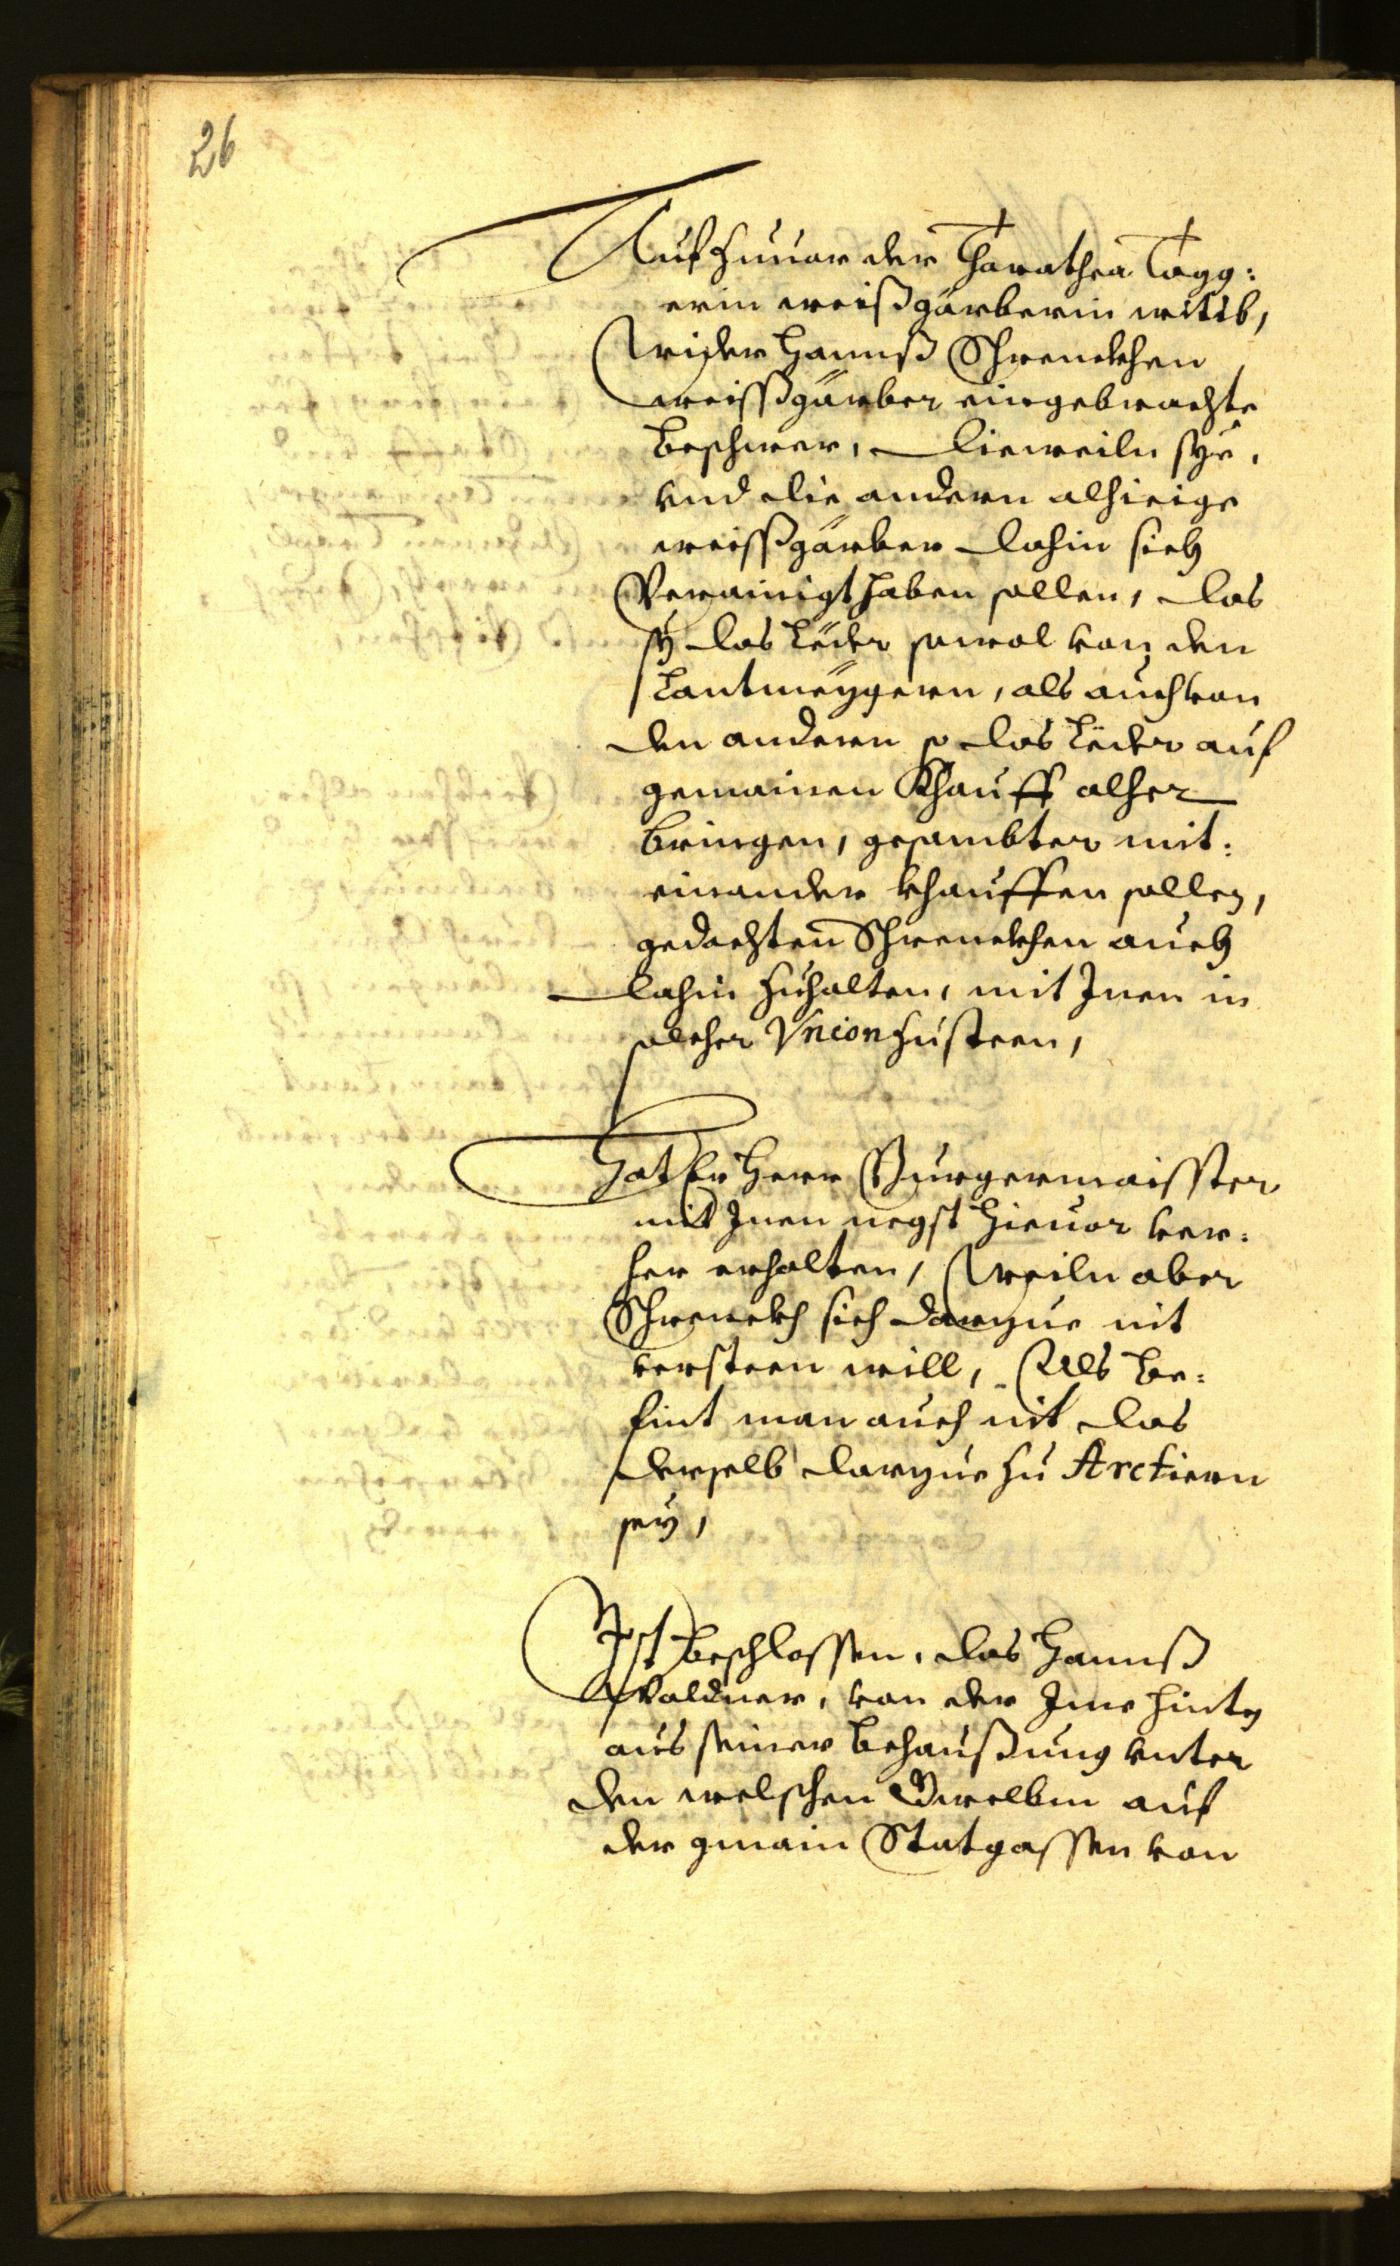 26
Auf zuuor der Tharathea Tagg:
erin weißgärberin wittib,
wider Hannß Schrenckhen
weissgärber eingebrachte
beschwer, dieweiln sye,
vnd die andern alhieige
weissgärber dahin sich
Verainigt haben sollen, das
sy das Leder sowol von den
Lantmezgern, als auch von
den andern so das Leder auf
gemainen Khauff alher
bringen, gesambter mit:
einander khauffen sollen,
gedachten Schrenckhen auch
dahin zuhalten, mit Inen in
solcher Vnion zusteen,
Hat Er Herr Burgermaisster
mit Inen negst hieuor ver:
her erhalten, Weiln aber
Schrenckh sich darzue nit
versteen will, Als be:
fint man auch nit das
derselb darzue zu Arctiern
sey,
Ist beschlossen, das Hannß
Waldner, von der Ime hinten
aus seiner Behaußung vnter
den welschen Gwelben auf
der gmain Statgassen von